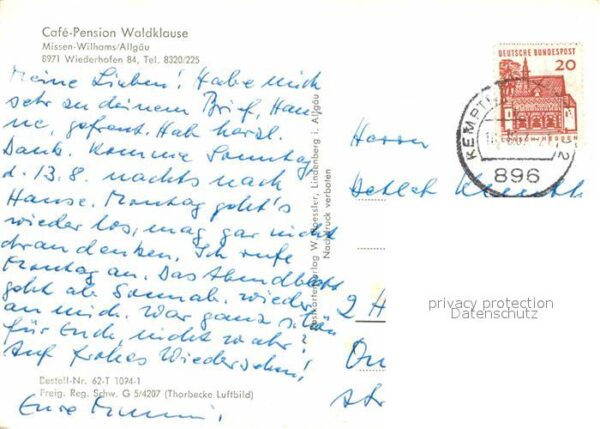 Café-Pension Waldklause
Missen-Wilhams/Allgäu
8971 Wiederhofen 84, Tel. 8320/225
Meine Lieben! Habe mich
sehr zu deinem Brief, Han-
ne, gefreut. Hab herzl.
Dank. Komme Sonntag,
d. 13.8. nachts nach
Hause. Montag geht's
wieder los, mag gar nicht
dran denken. Ich rufe
Montag an. Das Abendblatt
geht ab Sonnab. wieder
an mich. War ganz schön
für Euch, nicht wahr?
Auf frohes Wiedersehen!
Eure
Bestell-Nr. 62-T 1094-1
Freig. Reg. Schw. G 5/4207 (Thorbecke Luftbild)
Postkartenverlag W. Roessler, Lindenberg i. Allgäu
Nachdruck verboten
DEUTSCHE BUNDESPOST
20
KEMPT
896
2
Herrn
Detlef
2 H
Str
privacy protection
Datenschutz